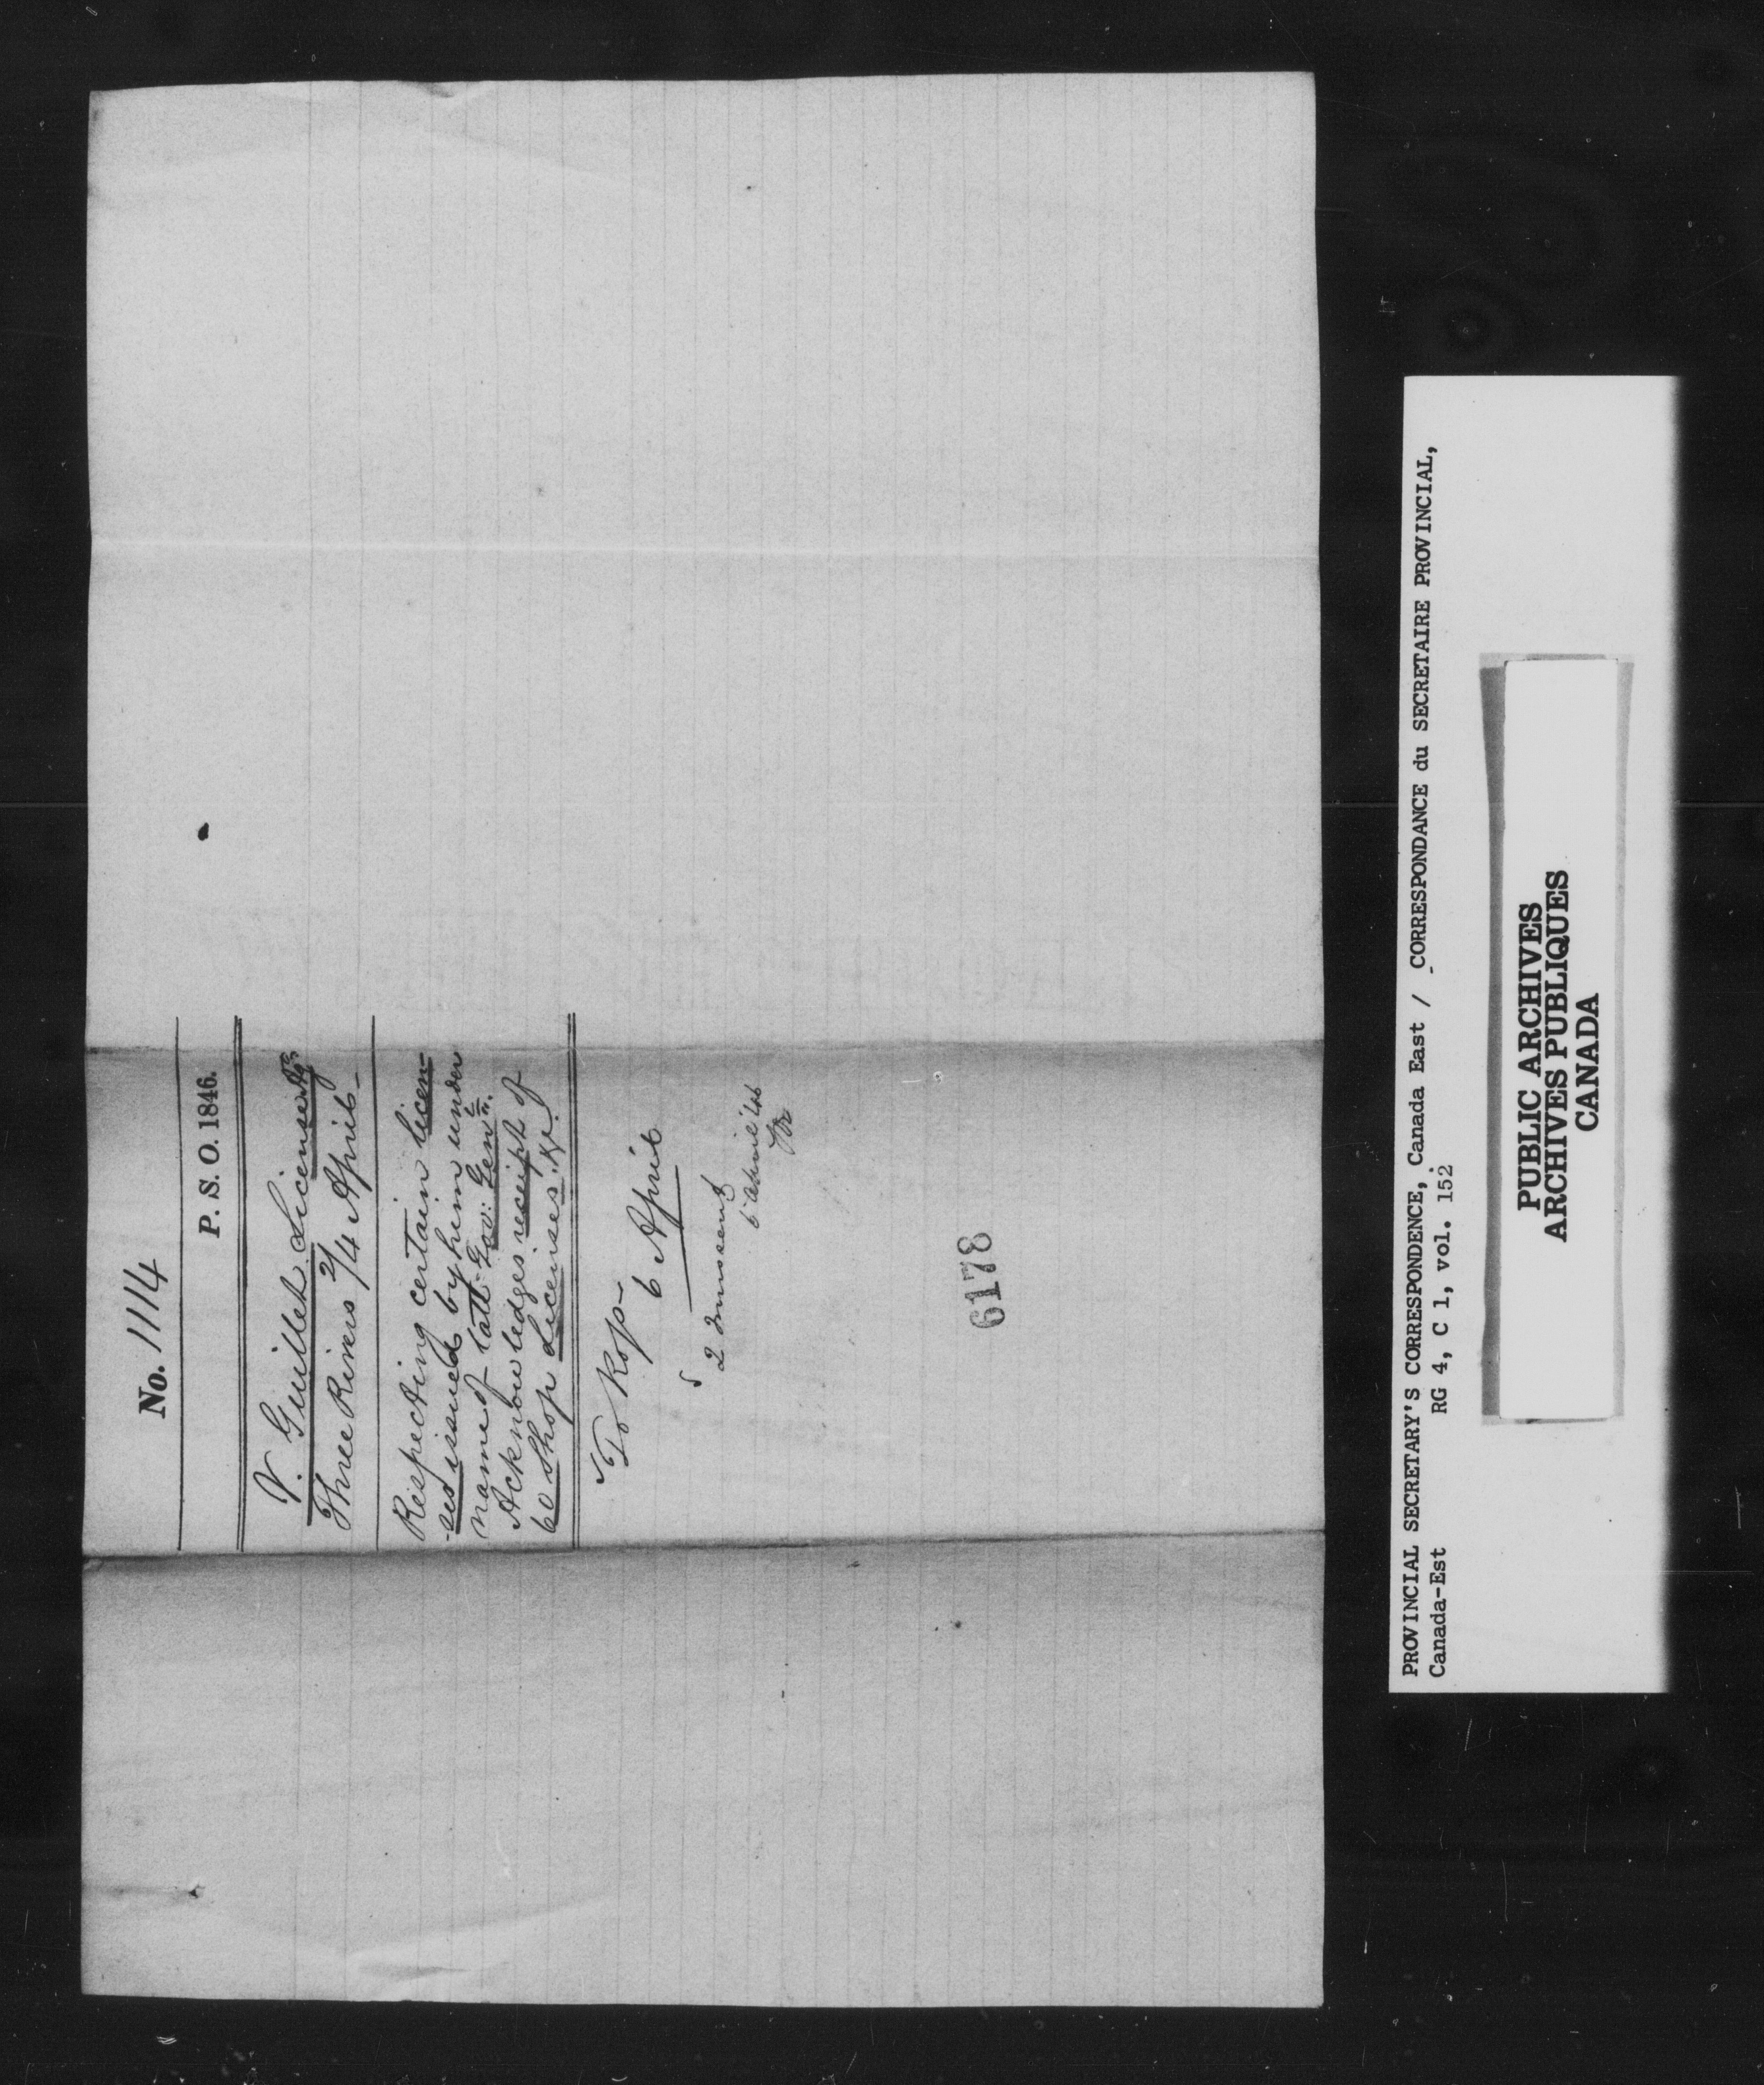 No. 1114
P. S. O. 1846.
V. Guillet. License
Three Rivers 2/4 April
Respecting certain licen-
-ses issued by him under
name of late Gov: Genl.
Acknowledges receipt of
60 Shop Licenses. &c.
6 April
2
6178
PROVINCIAL SECRETARY'S CORRESPONDENCE, Canada East / CORRESPONDANCE du SECRETAIRE PROVINCIAL,
Canada-Est RG 4, C 1, vol. 152
PUBLIC ARCHIVES
ARCHIVES PUBLIQUES
CANADA